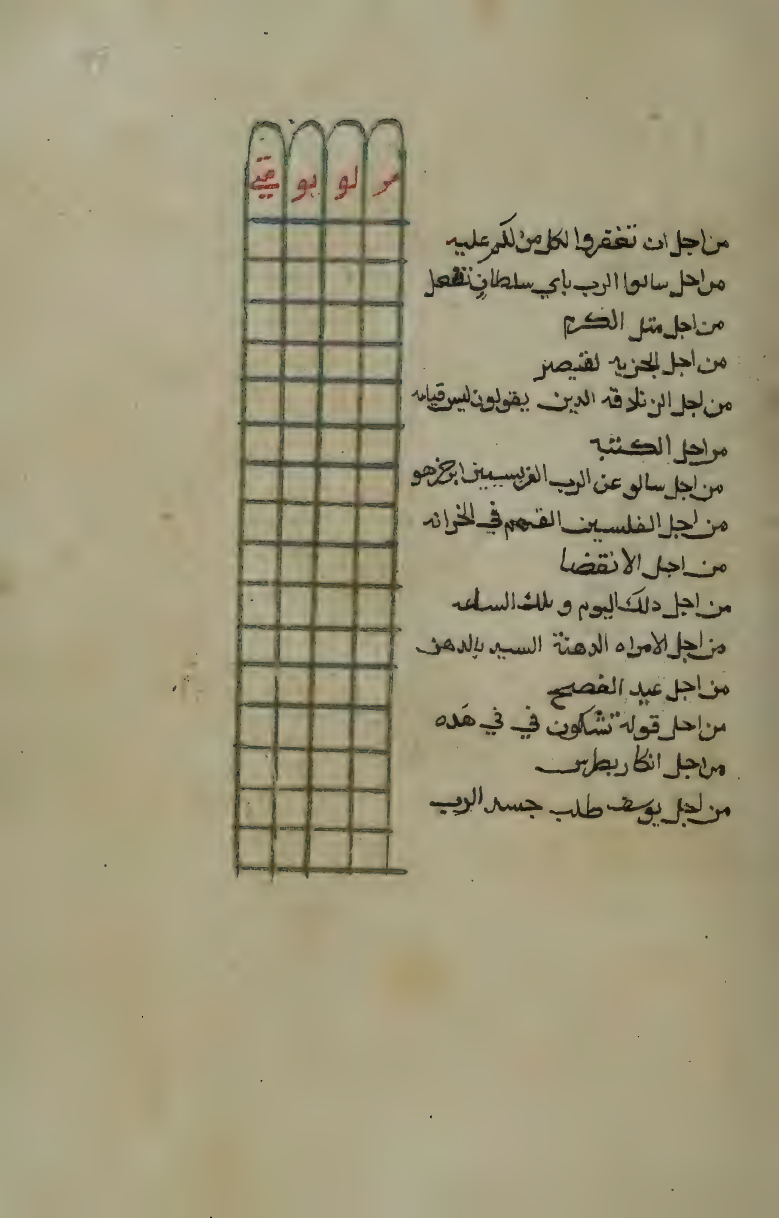 مر لو يو متى
من اجل ان تغفروا لكل من لكم عليه
من اجل سالوا الرب باي سلطان تفعل
من اجل مثل الكرم
من اجل الجزيه لقيصر
من اجل الزنادقه الدين يقولون ليس قيامه
من اجل الكتبه
من اجل سالو عن الرب الفريسيين ابن هو
من اجل الفلسين القتهم في الخزانه
من اجل الانقضا
من اجل دلك اليوم و تلك الساعه
من اجل الامراه الدهنة السيد بالدهن
من اجل عيد الفصح
من اجل قولة تشكون في في هده
من اجل انكار بطرس
من اجل يوسف طلب جسد الرب